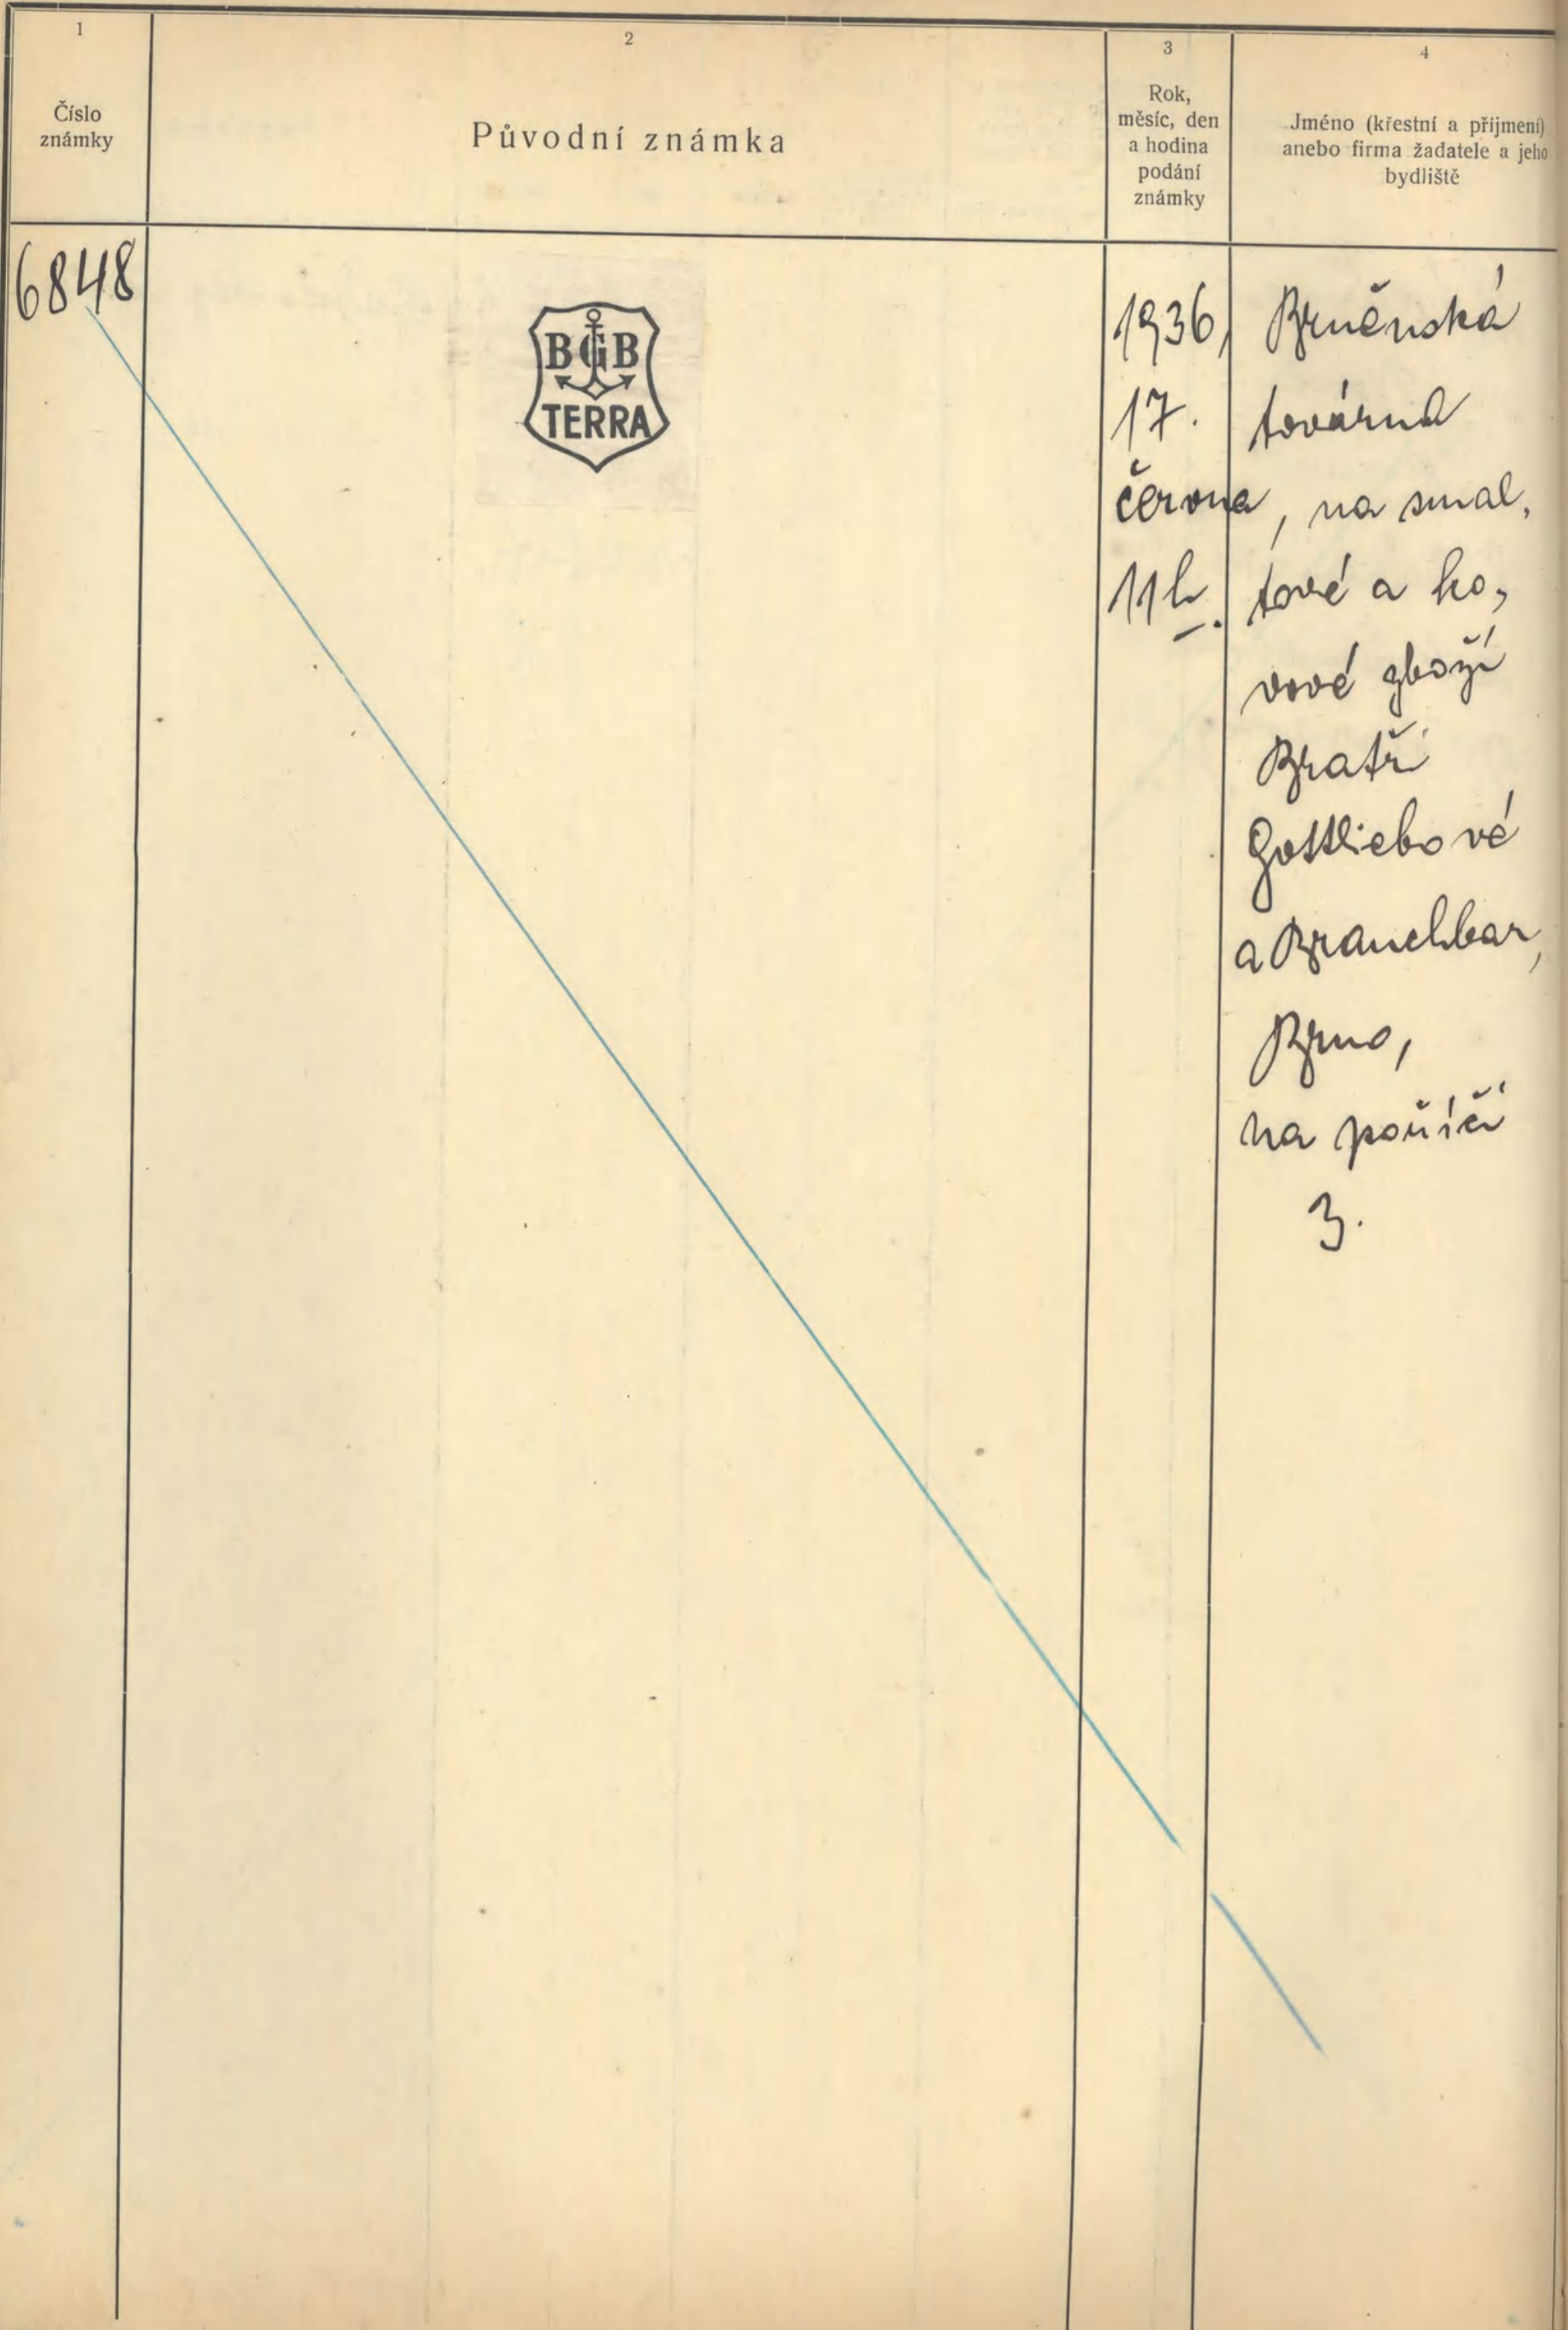 1
Číslo
známky
2
Původní známka
3
Rok,
měsíc, den
a hodina
podání
známky
4
Jméno (křestní a příjmení)
anebo firma žadatele a jeho
bydliště
6848
BGB
TERRA
1936,
17.
června,
11h.
Brněnská
továrna
na smal,
tové a ko,
vové zboží
Bratři
Gottliebové
a Brauchbar,
Brno,
na poříčí
3.